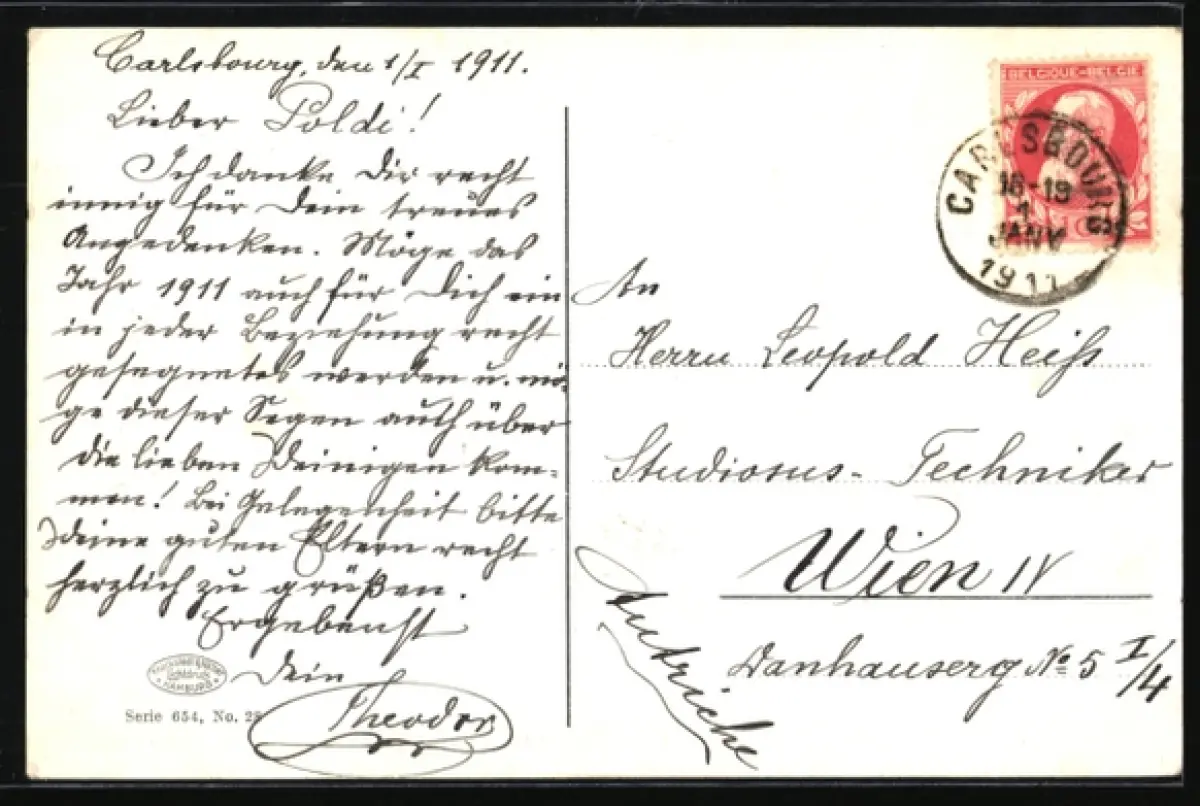 Carlsbourg, den 1/I 1911.
Lieber Poldi!
Ich danke Dir recht
innig für Dein treues
Angedenken. Möge das
Jahr 1911 auch für Dich ein
in jeder Beziehung recht
gesegnetes werden u. mö-
ge dieser Segen auch über
die lieben Deinigen kom-
men! Bei Gelegenheit bitte
Deine guten Eltern recht
herzlich zu grüßen.
Ergebenst
Dein
Theodor
HAMBURG
Serie 654, No. 28
BELGIQUE-BELGIË
CARLSBOURG
18-19
1
JANV
1911
An
Herrn Leopold Heiss
Studiosus-Techniker
Wien IV
Danhauserg № 5 I/4
Autriche